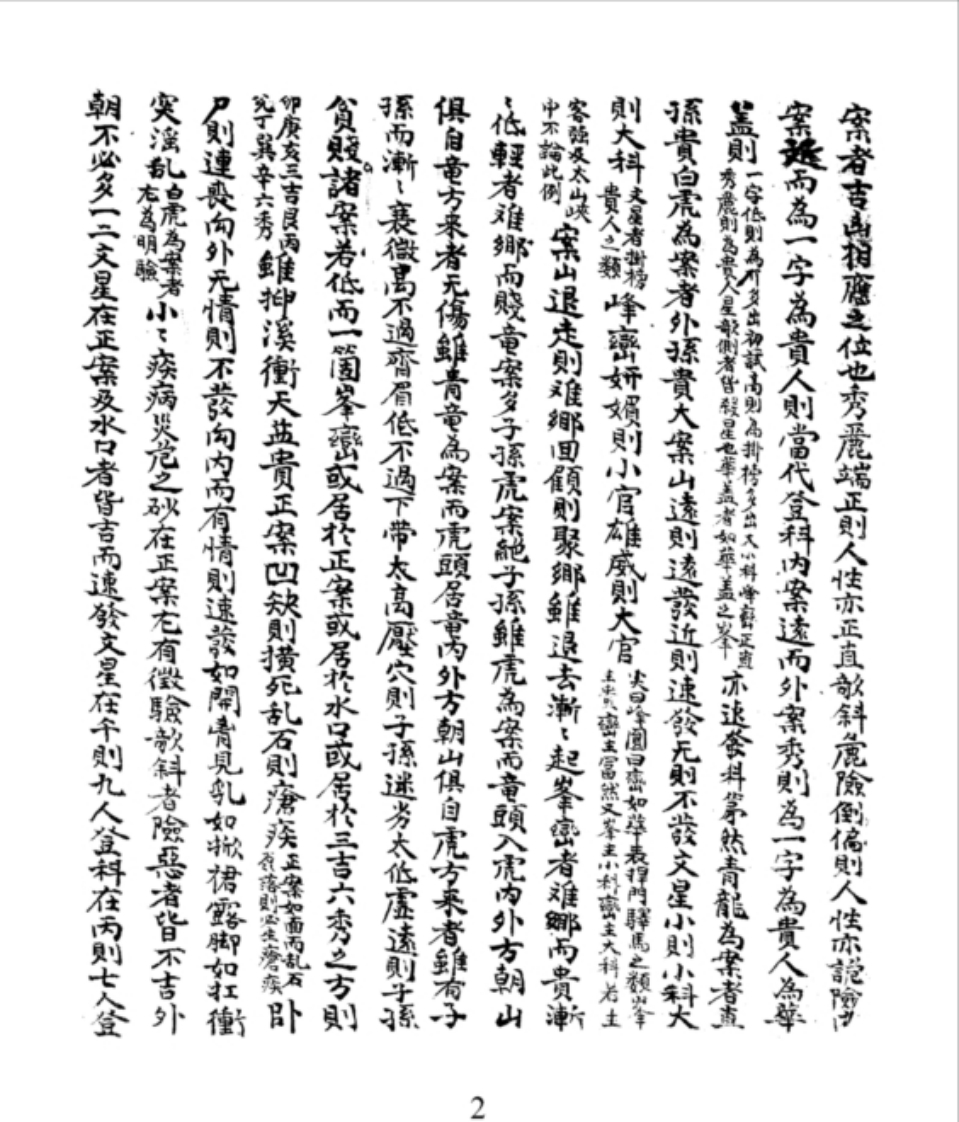 案者吉凶相應之位也秀麗端正則人性亦正直欹斜危險倒傴則人性亦詭險內
案遠而為一字為貴人則當代登科內案遠而外案秀則為一字為貴人為華
盖則一字低則為 多出初試高則為掛榜多出大小科峰巒正直秀麗則為貴人星欹側者皆殺星也華盖者如華盖之峯亦速發科第然青龍為案者直
孫貴白虎為案者外孫貴大案山遠則遠發近則速發无則不發文星小則小科大
則大科文星者掛榜貴人之類峰巒妍媚則小官雄威則大官尖曰峰圓曰巒如華表捍門驛馬之類峯主 巒主富然又峯主小科巒主大科若土
客强及太山峽中不論此例案山退走則难鄉回顧則聚鄉雖退去漸〻起峯巒者难鄉而貴漸
〻低輕者难鄉而賤竜案多子孫虎案絶子孫雖虎為案而竜頭入虎內外方朝山
俱自竜方来者无傷雖青竜為案而虎頭居竜內外方朝山俱自虎方来者雖有子
孫而漸〻衰微禺不過齊眉低不過下帶太高壓穴則子孫迷劣太低虛遠則子孫
貧賤諸案若低而一箇峯巒或居於正案或居於水口或居於三吉六秀之方則
卯庚亥三吉艮丙兌丁巽辛六秀雖抑溪衝天益貴正案凹缺則橫死乱石則瘡疾正案如面而乱石 落則必生瘡疾卧
尸則連喪向外无情則不發向內而有情則速發如開肯見乳如掀裙露脚如扛衝
突滛乱白虎為案者尤為明驗小〻疾病災危之砂在正案尤有徵驗欹斜者險惡者皆不吉外
朝不必多一二文星在正案及水口者皆吉而速發文星在午則九人登科在丙則七人登
2